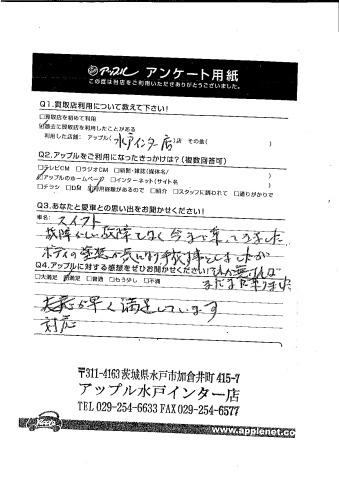 アップル アンケート用紙
この度は当店をご利用いただきありがとうございました。
Q1.買取店利用について教えて下さい!
□買取店を初めて利用
過去に買取店を利用したことがある
利用した店舗: アップル( 水戸インター店 )店 その他( )
Q2.アップルをご利用になったきっかけは?(複数回答可)
テレビCM □ラジオCM □新聞・雑誌(媒体名/ )
アップルのホームページ □インターネット(サイト名 )
□チラシ □DM 利用経験があるので □紹介 □スタッフに誘われて □通りがかりで
Q3.あなたと愛車との思い出をお聞かせください!
車名: スイフト
故障らしい故障もなく今まで乗ってきました
ボディの塗装が気になり手放す事にしましたが
それが無ければ
Q4.アップルに対する感想をぜひお聞かせください!
まだまだ乗りました
□大満足 満足 □普通 □もう少し □不満
対応が早く満足しています
対応
〒311-4163茨城県水戸市加倉井町 415-7
アップル水戸インター店
TEL 029-254-6633 FAX 029-254-6577
www.applenet.co